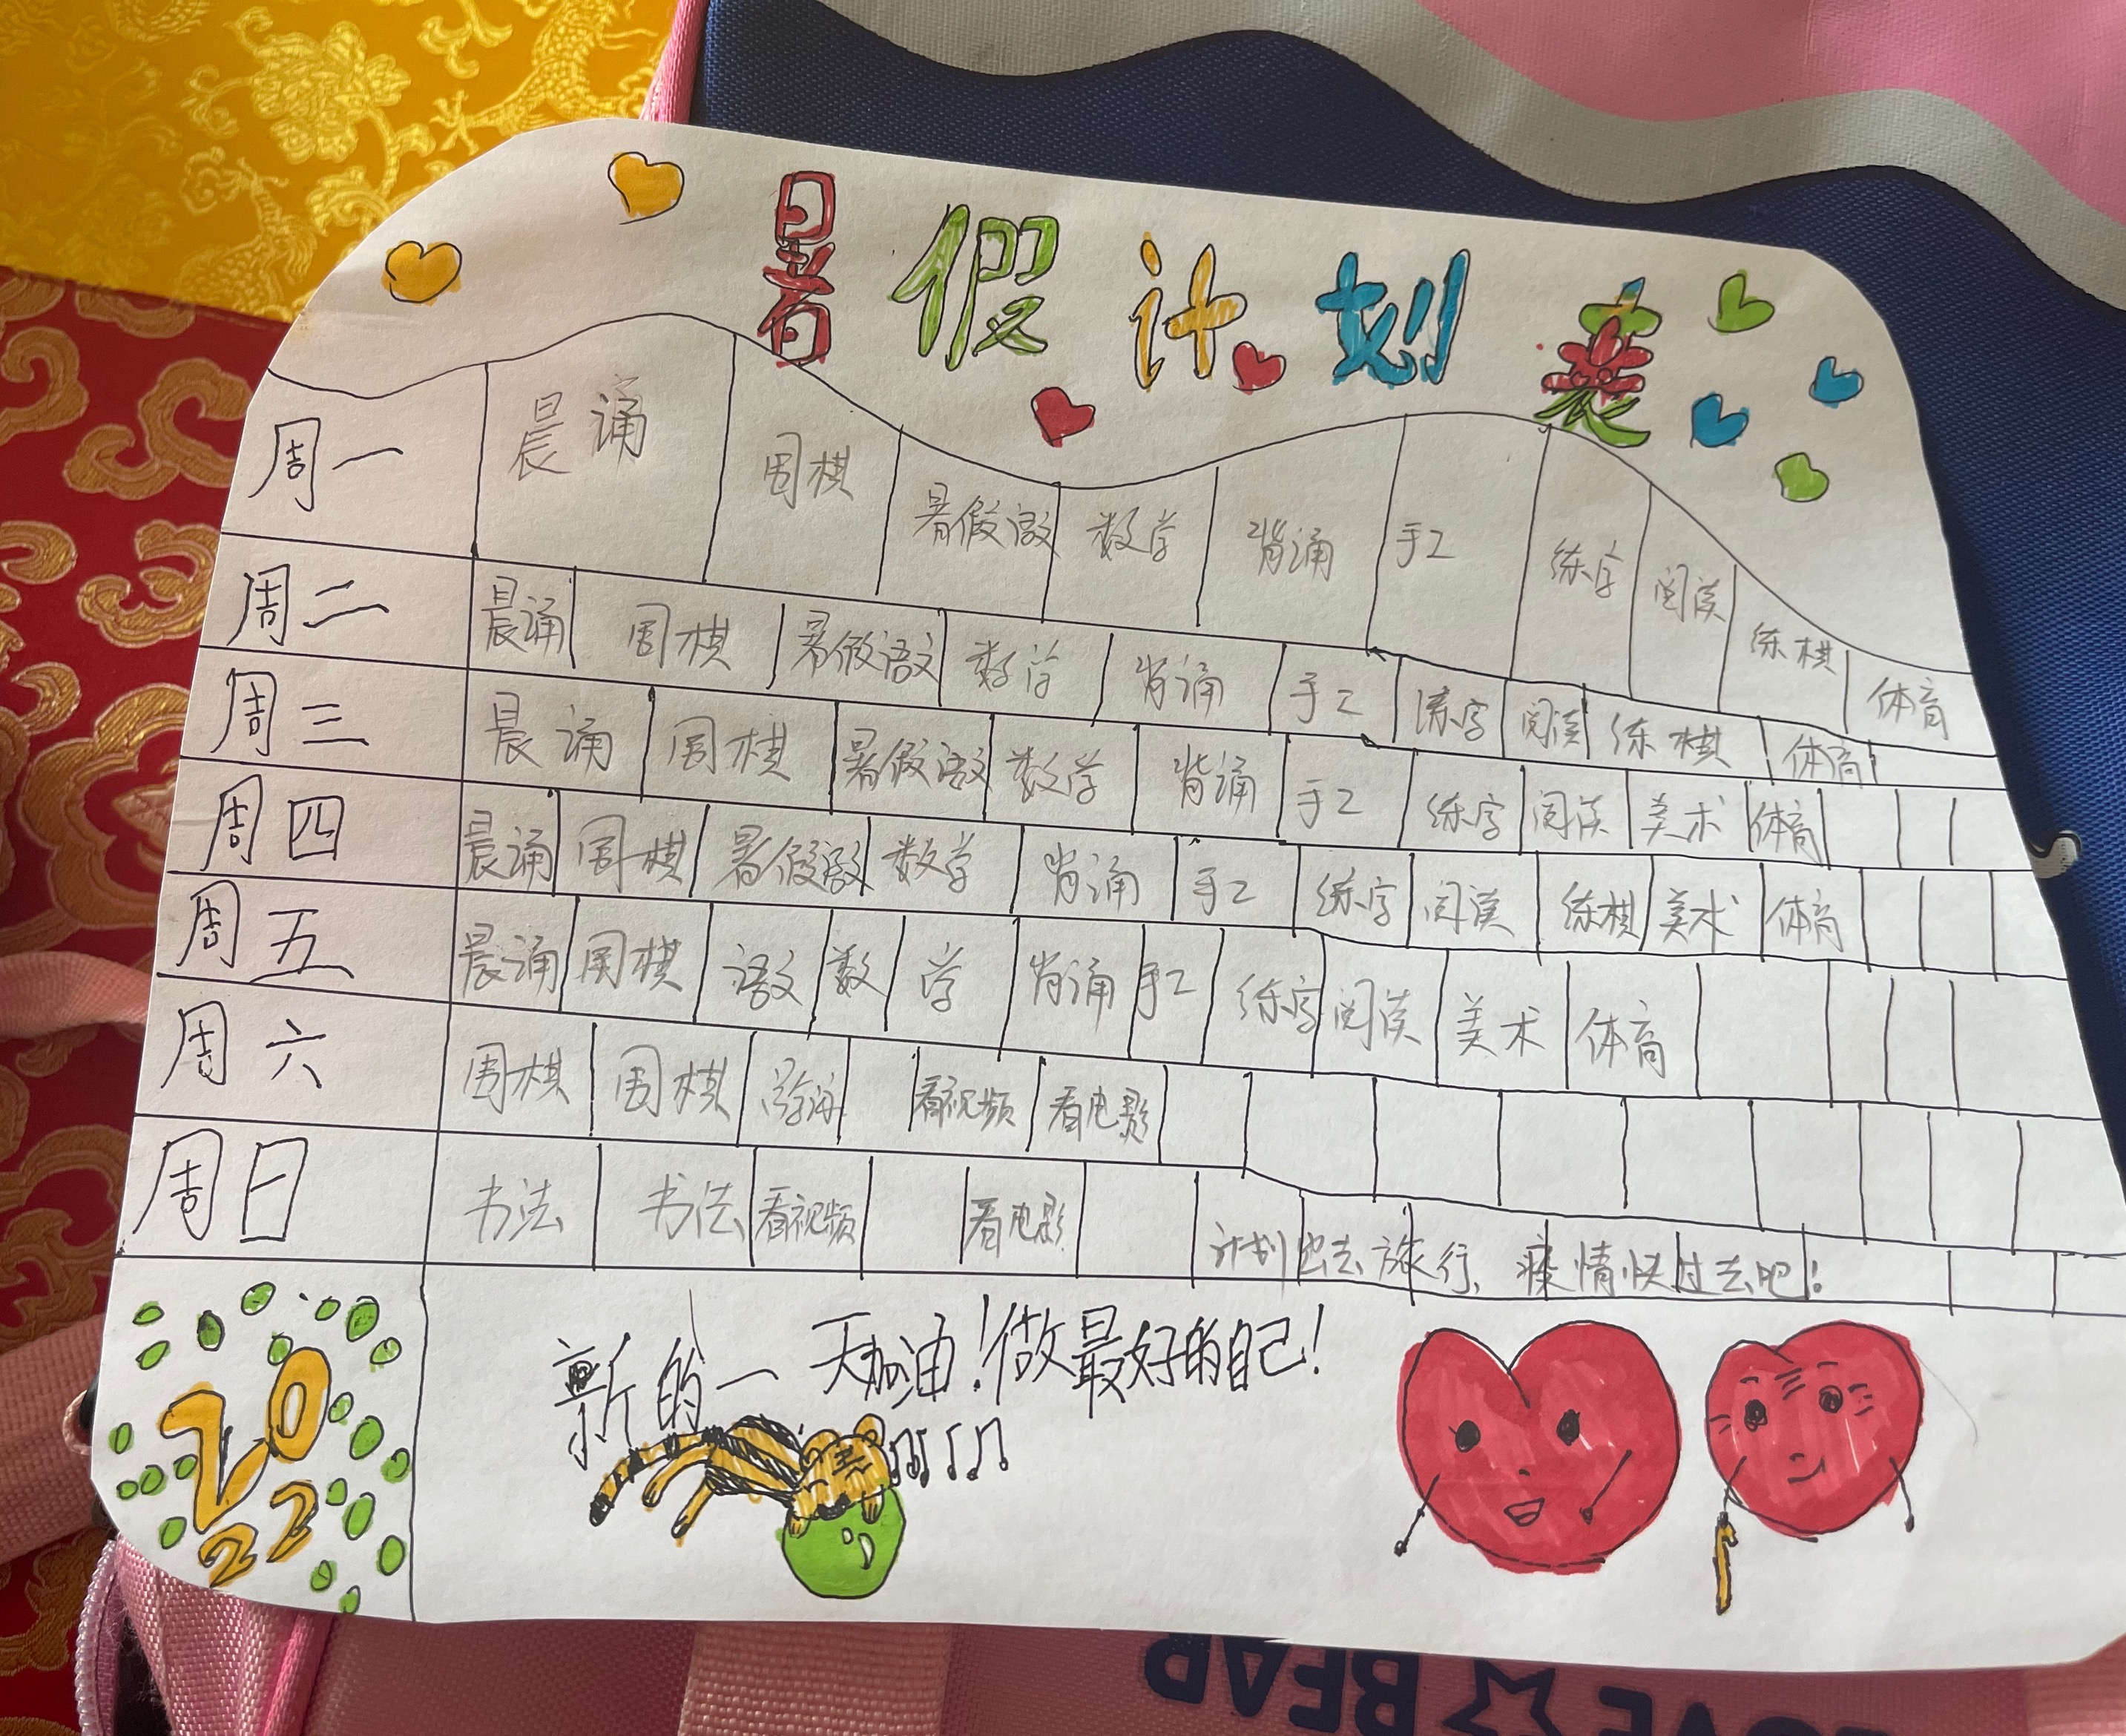 暑假计划表
周一 晨诵 围棋 暑假语文 数学 背诵 手工 练字 阅读 练棋 体育
周二 晨诵 围棋 暑假语文 数学 背诵 手工 练字 阅读 练棋 体育
周三 晨诵 围棋 暑假语文 数学 背诵 手工 练字 阅读 美术 体育
周四 晨诵 围棋 暑假语文 数学 背诵 手工 练字 阅读 练棋 美术 体育
周五 晨诵 围棋 语文 数学 背诵 手工 练字 阅读 美术 体育
周六 围棋 围棋 看视频 看电影
周日 书法 书法 看视频 看电影 计划出去旅行，疫情快过去吧！
2022
新的一天加油！做最好的自己！
LOVE BEAR